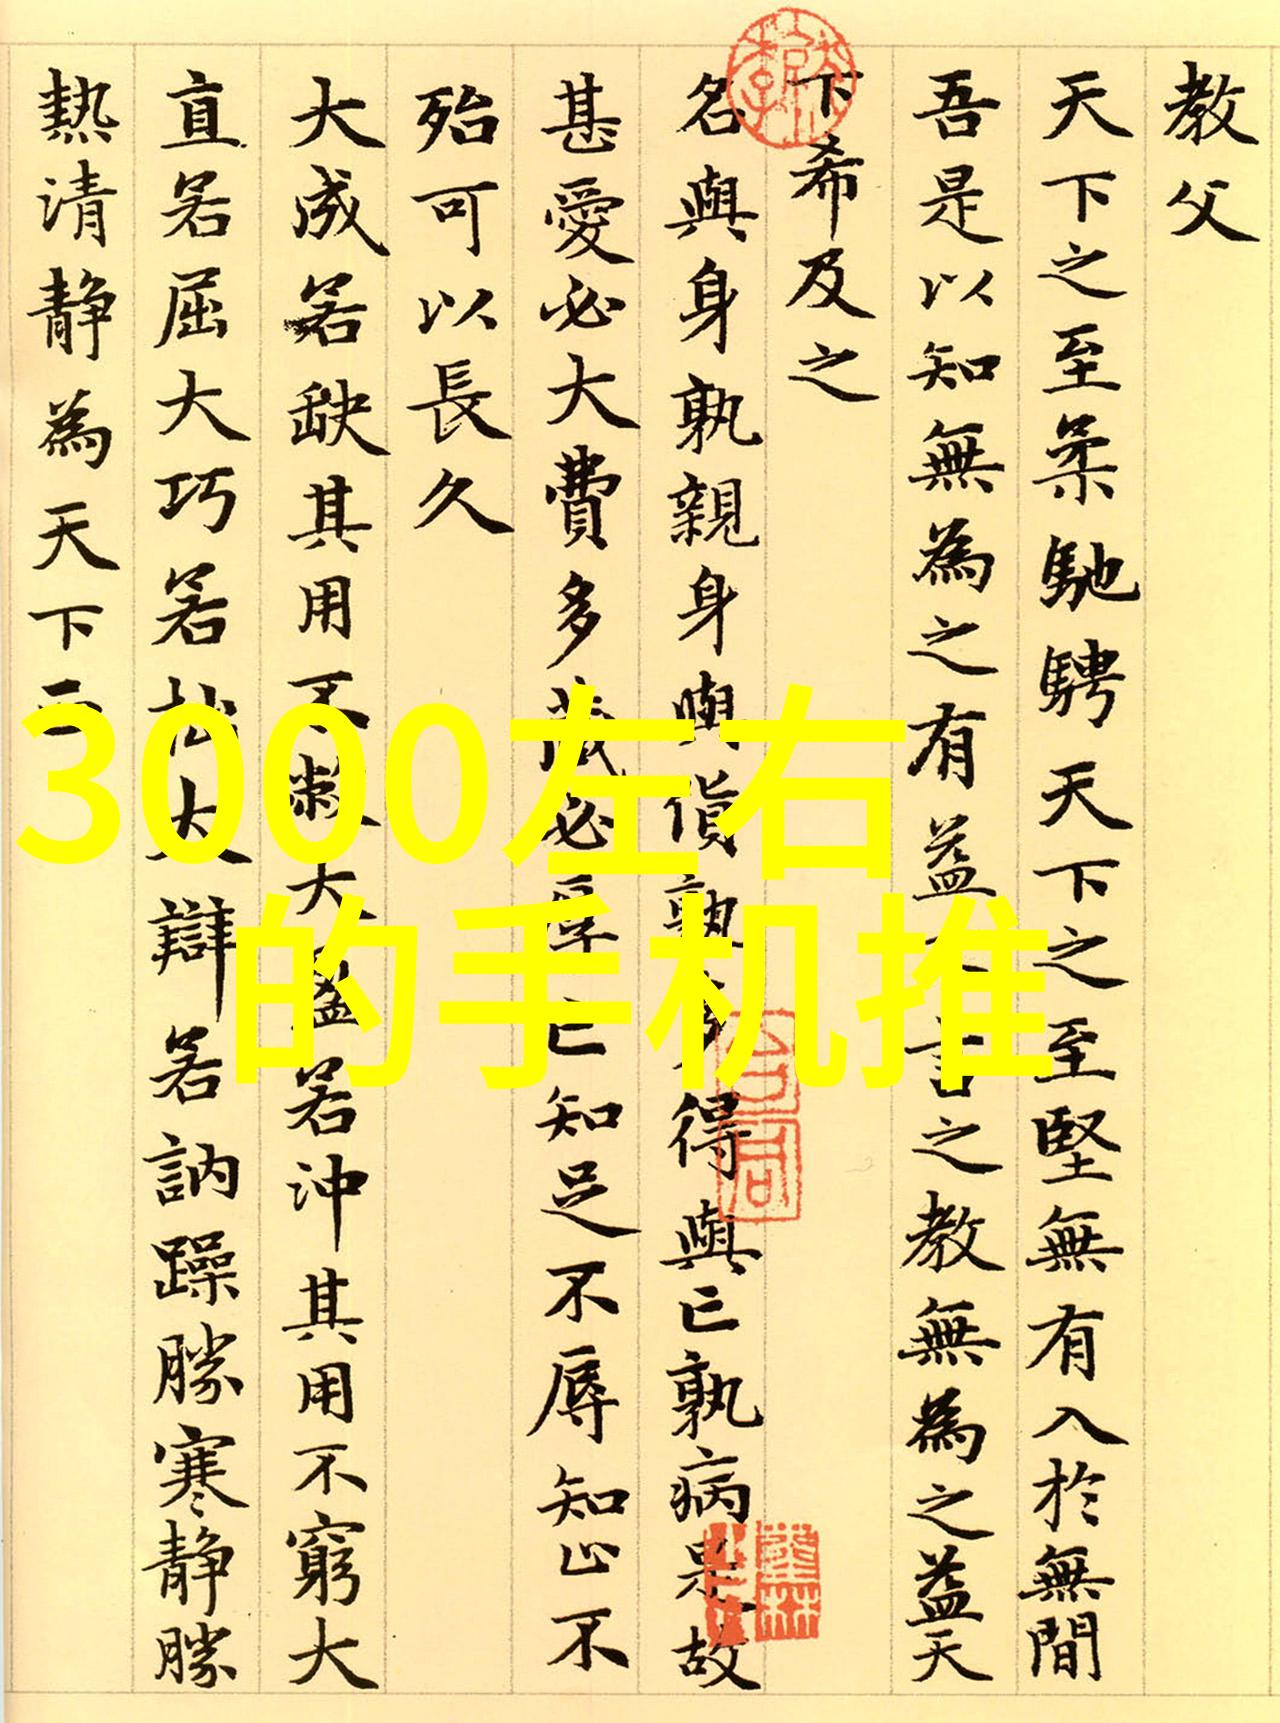 教父
天下之至柔馳騁天下之至堅無有入於無間
吾是以知無為之有益言之教無為之益天
下希及之
名與身孰親身與貨孰多得與亡孰病是故
甚愛必大費多藏必厚亡知足不辱知止不
殆可以長久
大成若缺其用不敝大盈若沖其用不窮大
直若屈大巧若拙大辯若訥躁勝寒靜勝
熱清靜為天下正
3000左右
的手机推